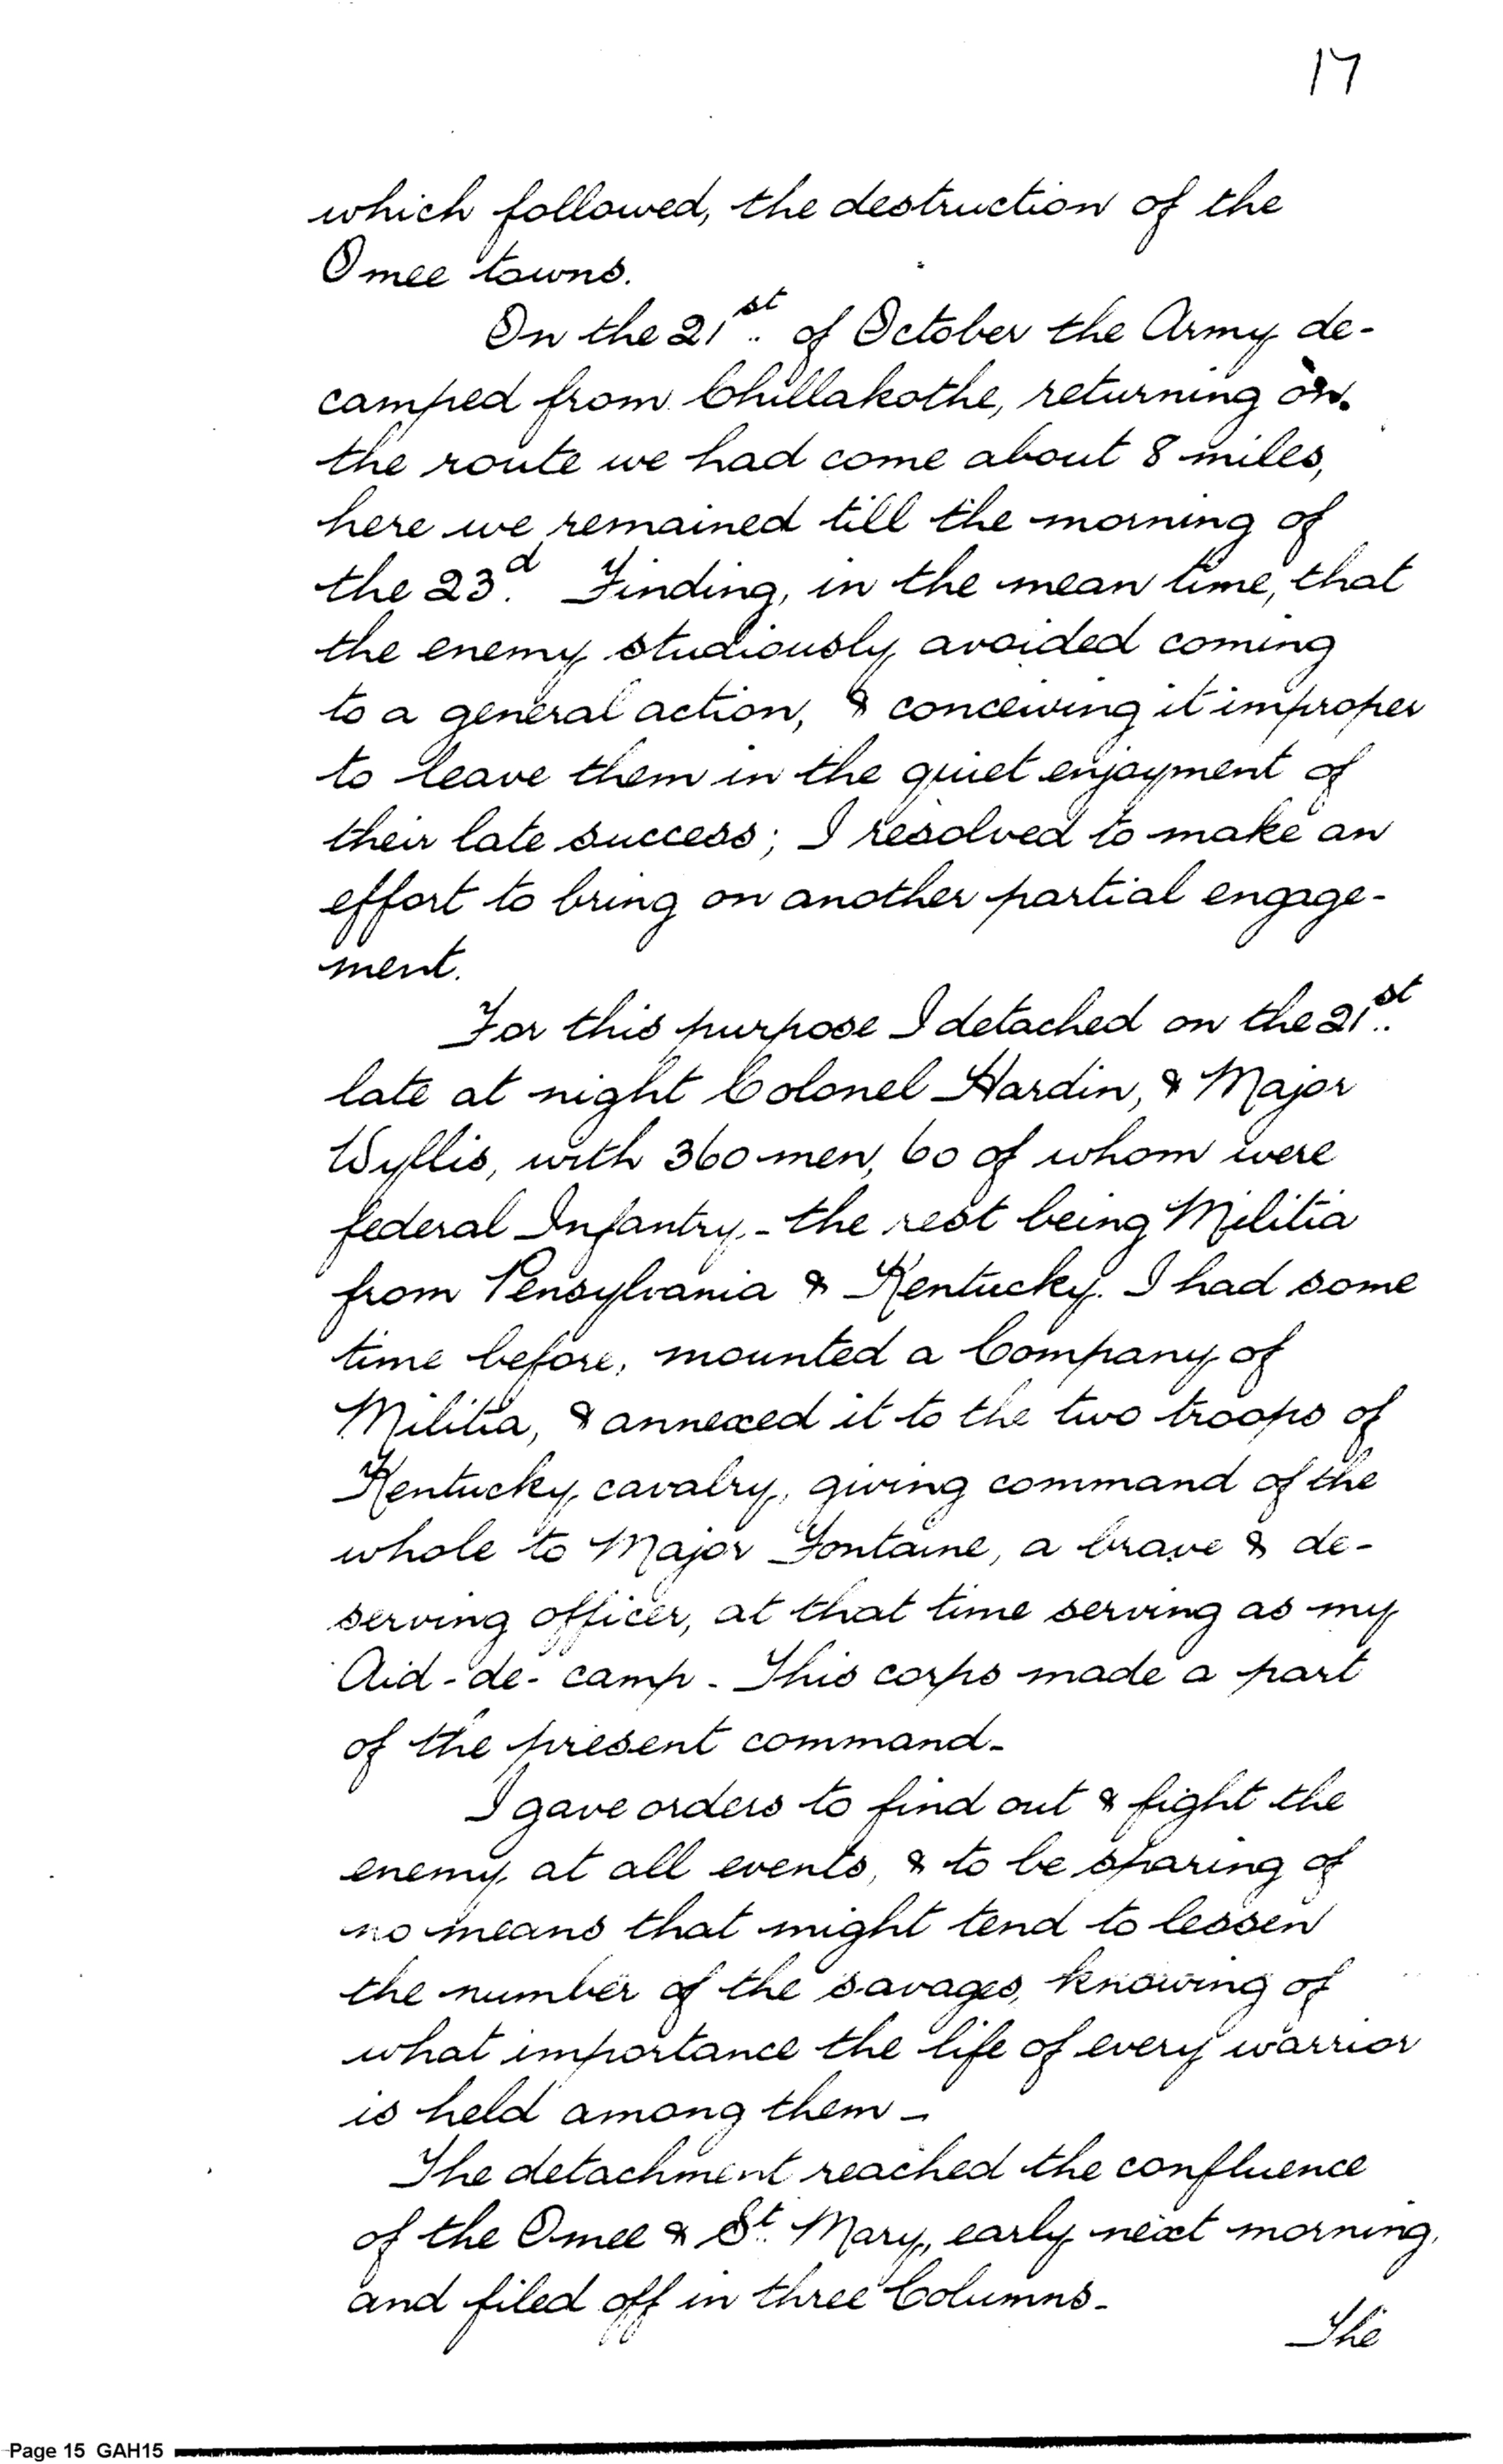 17
which followed, the destruction of the
Omee towns.
On the 21st. of October the Army de-
camped from Chillakothe, returning on
the route we had come about 8 miles,
here we remained till the morning of
the 23d. Finding, in the mean time, that
the enemy studiously avoided coming
to a general action, & conceiving it improper
to leave them in the quiet enjoyment of
their late success; I resolved to make an
effort to bring on another partial engage-
ment.
For this purpose I detached on the 21st.
late at night Colonel Hardin, & Major
Wyllis, with 360 men, 60 of whom were
federal Infantry, - the rest being Militia
from Pensylvania & Kentucky. I had some
time before, mounted a Company of
Militia, & annexed it to the two troops of
Kentucky cavalry, giving command of the
whole to Major Fontaine, a brave & de-
serving officer, at that time serving as my
Aid-de-camp - This corps made a part
of the present command -
I gave orders to find out & fight the
enemy at all events, & to be sparing of
no means that might tend to lessen
the number of the savages, knowing of
what importance the life of every warrior
is held among them -
The detachment reached the confluence
of the Omee & St. Mary, early next morning,
and filed off in three Columns -
The
Page 15 GAH15